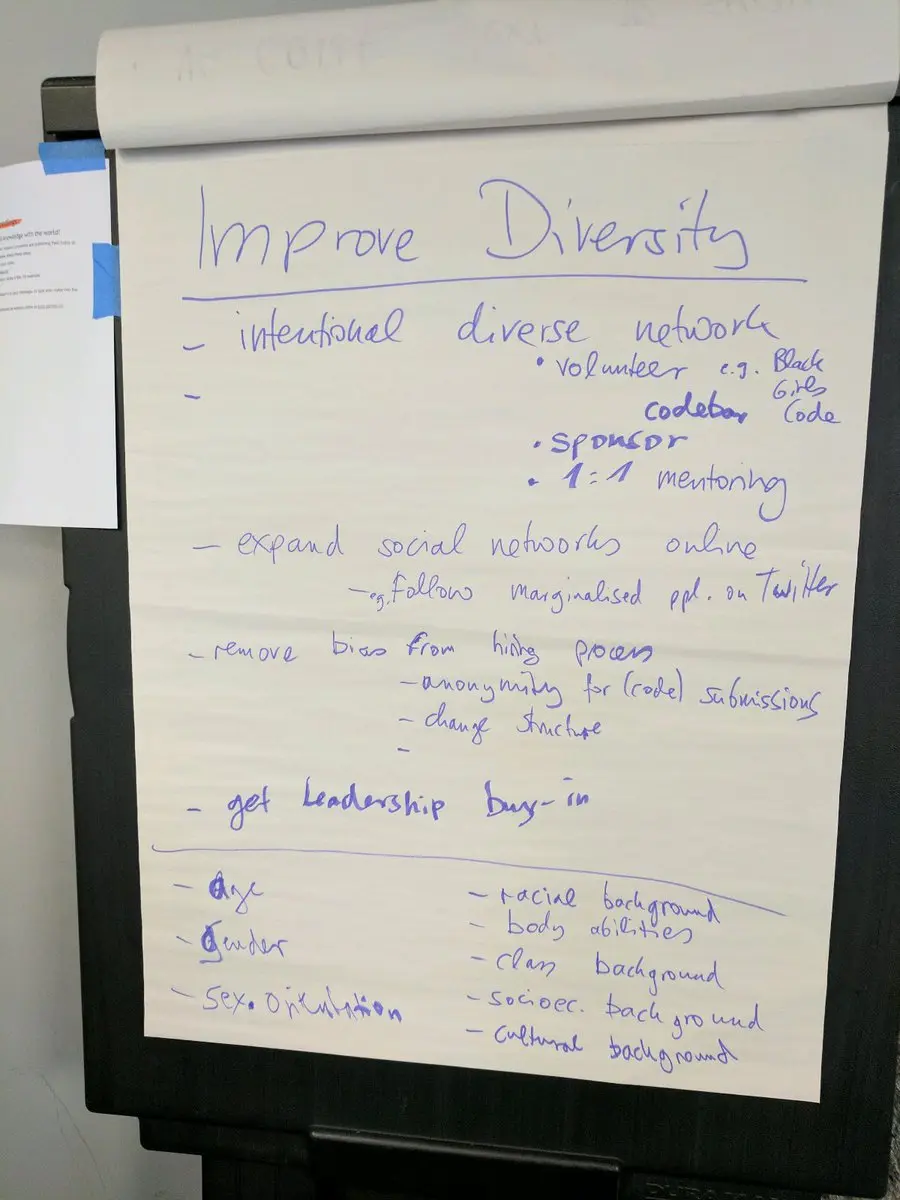 Improve Diversity
- intentional diverse network
• volunteer e.g. Black Girls Code
codebar
-
• sponsor
• 1:1 mentoring
- expand social networks online
- e.g. Follow marginalised ppl. on Twitter
- remove bias from hiring process
- anonymity for (code) submissions
- change structure
-
- get Leadership buy-in
- Age
- Gender
- Sex. Orientation
- racial background
- body abilities
- class background
- socioec. background
- cultural background
knowledge with the world!